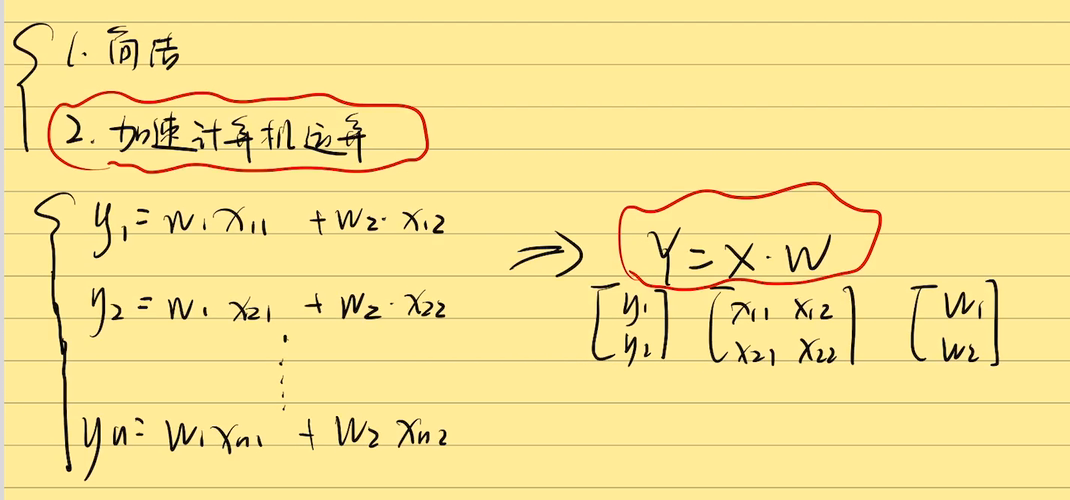 1. 简洁
2. 加速计算机运算
y₁ = w₁x₁₁ + w₂·x₁₂
y₂ = w₁x₂₁ + w₂·x₂₂
⋮
yn = w₁xn₁ + w₂xn₂
⇒ Y = X·W
[y₁ y₂] [x₁₁ x₁₂ x₂₁ x₂₂] [w₁ w₂]